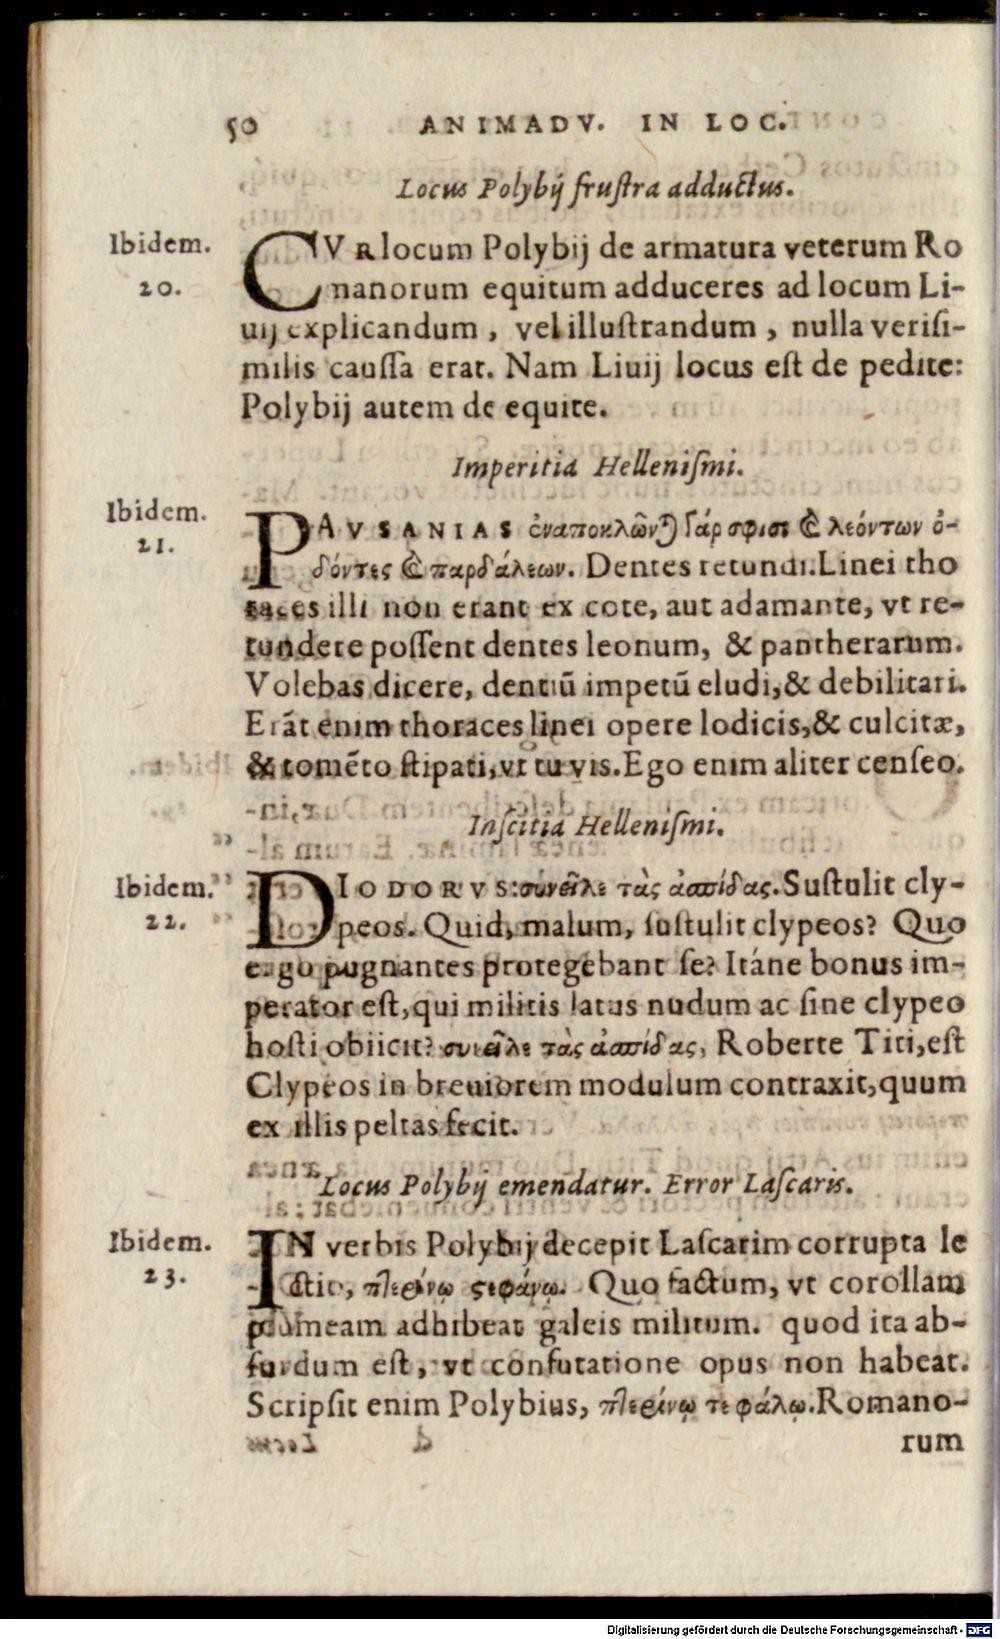 50 ANIMADV. IN LOC.
Locus Polybij frustra adductus.
Ibidem.
20.
CVR locum Polybij de armatura veterum Ro
manorum equitum adduceres ad locum Li-
uij explicandum, vel illustrandum, nulla verisi-
milis caussa erat. Nam Liuij locus est de pedite:
Polybij autem de equite.
Imperitia Hellenismi.
Ibidem.
21.
PAVSANIAS ἐναποκλῶνται γάρ σφισι καὶ λεόντων ὀ-
δόντες καὶ παρδάλεων. Dentes retundi. Linei tho
races illi non erant ex cote, aut adamante, vt re-
tundere possent dentes leonum, & pantherarum.
Volebas dicere, dentiū impetū eludi, & debilitari.
Erāt enim thoraces linei opere lodicis, & culcitæ,
& tomēto stipati, vt tu vis. Ego enim aliter censeo.
Inscitia Hellenismi.
Ibidem.
22.
DIODORVS: συνεῖλε τὰς ἀσπίδας. Sustulit cly-
peos. Quid, malum, sustulit clypeos? Quo
ergo pugnantes protegebant se? Itáne bonus im-
perator est, qui militis latus nudum ac sine clypeo
hosti obiicit? συνεῖλε τὰς ἀσπίδας, Roberte Titi, est
Clypeos in breuiorem modulum contraxit, quum
ex illis peltas fecit.
Locus Polybij emendatur. Error Lascaris.
Ibidem.
23.
IN verbis Polybij decepit Lascarim corrupta le
ctio, πτερίνῳ στεφάνῳ. Quo factum, vt corollam
plumeam adhibeat galeis militum. quod ita ab-
surdum est, vt confutatione opus non habeat.
Scripsit enim Polybius, πτερίνῳ τε φάλῳ. Romano-
rum
Digitalisierung gefördert durch die Deutsche Forschungsgemeinschaft - DFG